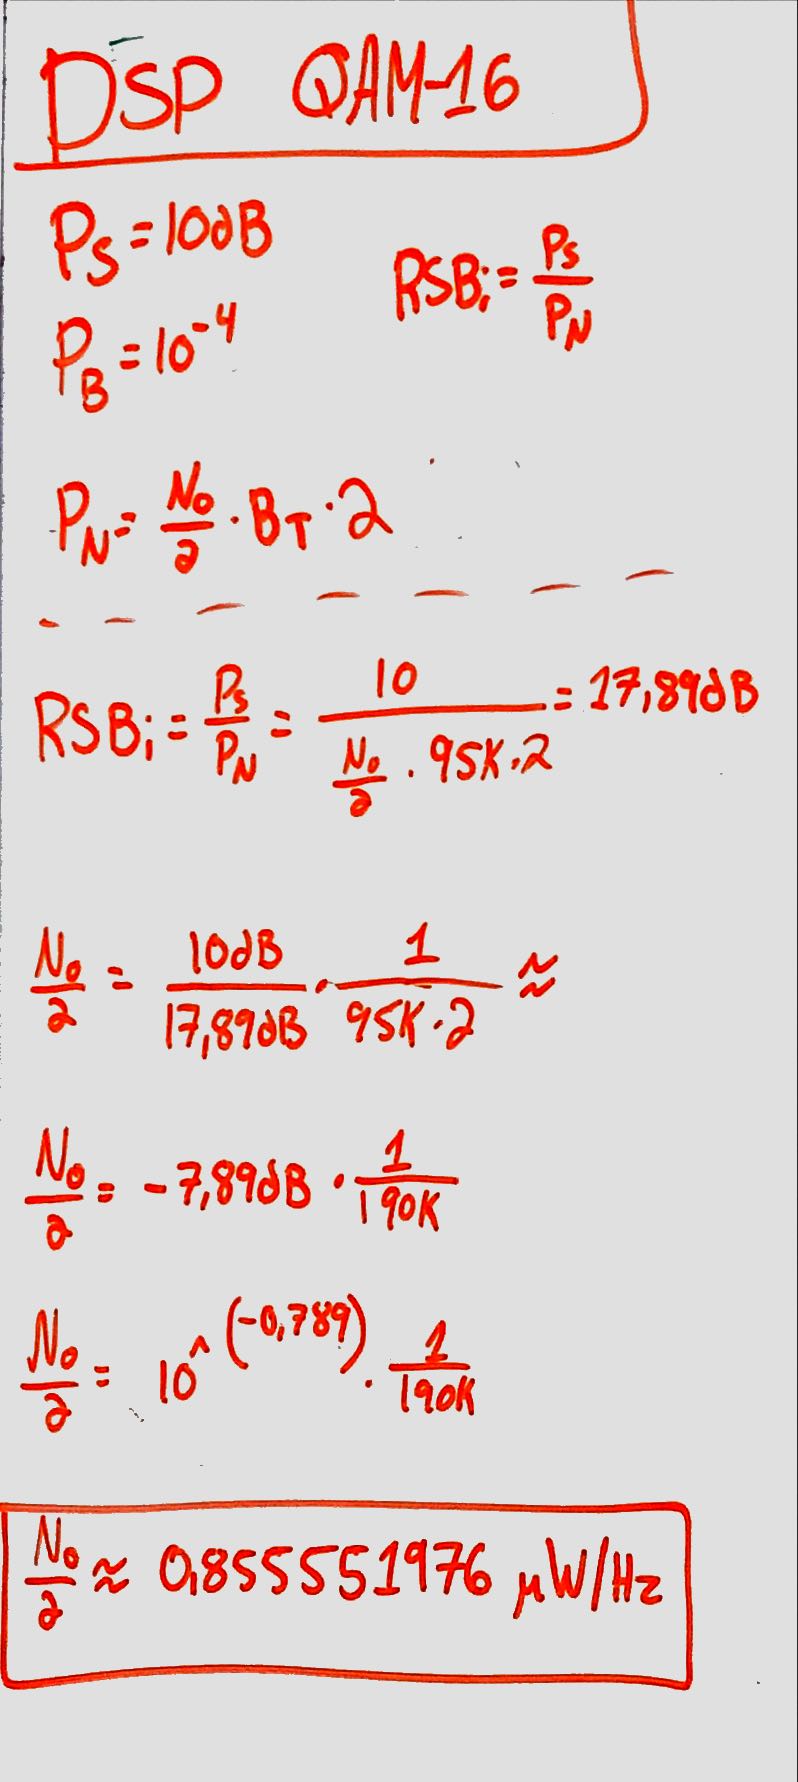 DSP QAM-16
Ps = 10dB
RSBi = Ps/PN
PB = 10^-4
PN = No/2 · BT · 2
RSBi = Ps/PN = 10/(No/2 · 95K · 2) = 17,89dB
No/2 = 10dB/17,89dB · 1/(95K · 2) ≈
No/2 = -7,89dB · 1/190K
No/2 = 10^(-0,789) · 1/190K
No/2 ≈ 0,855551976 μW/Hz